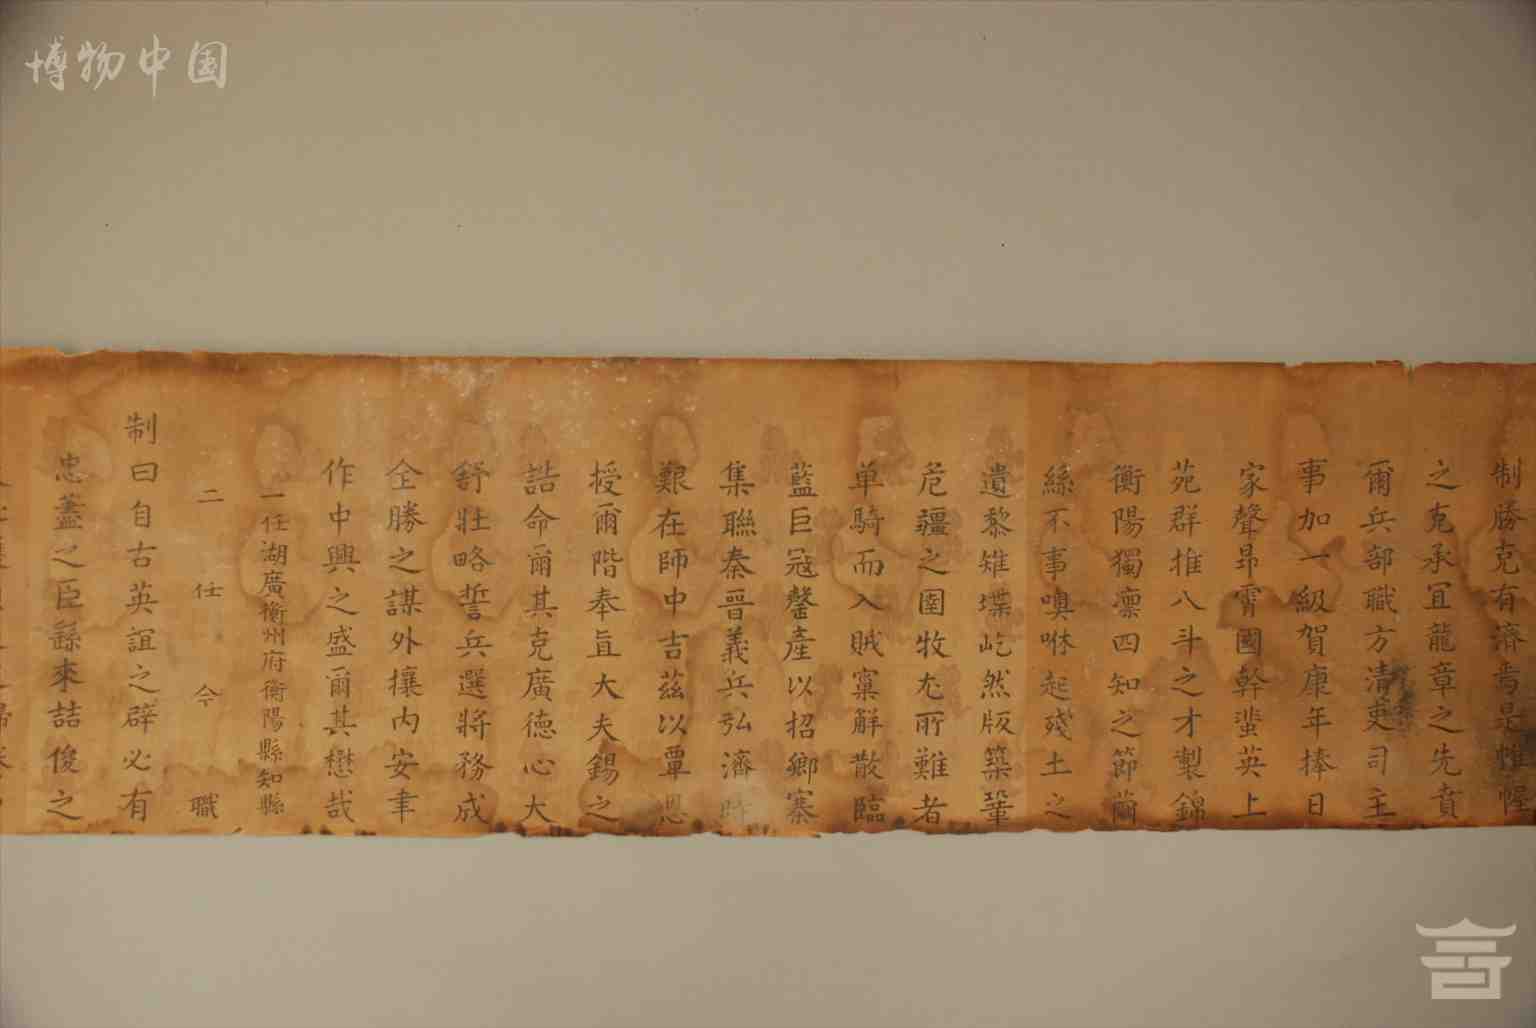 博物中国
制勝克有濟焉是惟幄
之克承冝龍章之先賁
爾兵部職方清吏司主
事加一級賀康年捧日
家聲昻霄國幹蜚英上
苑群推八斗之才製錦
衡陽獨凛四知之節繭
絲不事噢咻起殘土之
遺黎雉堞屹然版築鞏
危疆之圉牧尤所難者
单騎而入賊窠解散臨
藍巨冦罄產以招鄉寨
集聯秦晋義兵弘濟時
艱在師中吉茲以覃恩
授爾階奉㫖大夫錫之
誥命爾其克廣德心大
舒壯略誓兵選將務成
全勝之謀外攘内安聿
作中興之盛爾其懋哉
一任湖廣衡州府衡陽縣知縣
二任今職
制曰自古英誼之辟必有
忠藎之臣繇來喆俊之